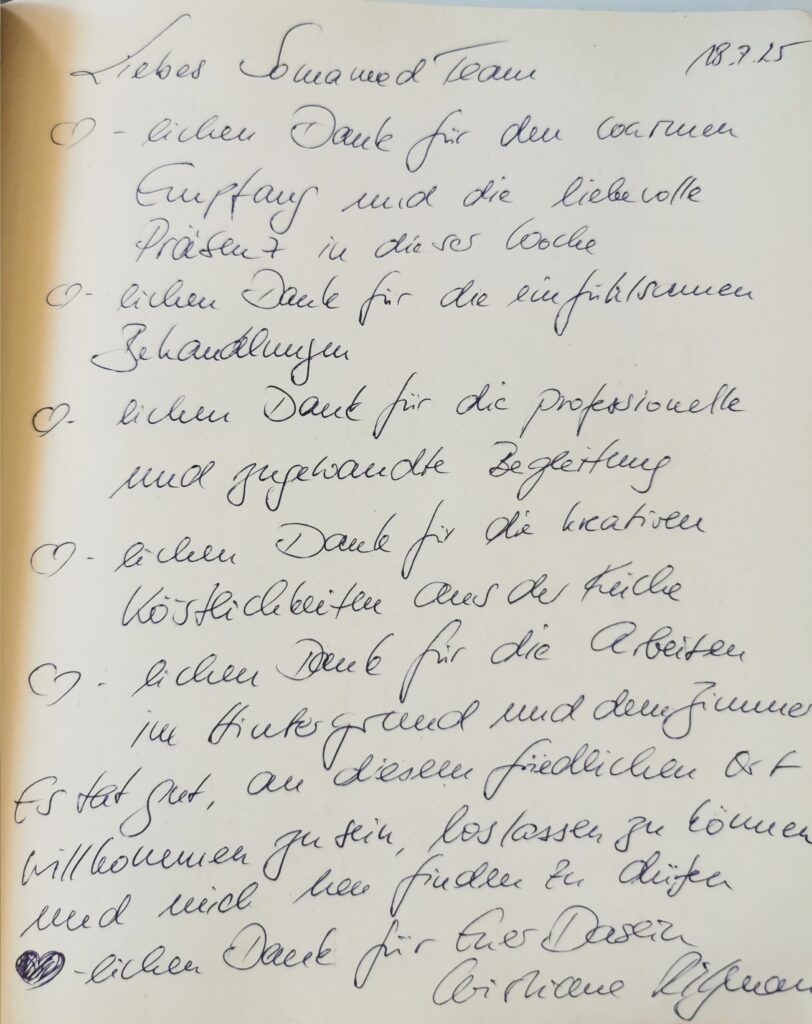 18.7.25
Liebes Somamed Team
♡ - lichen Dank für den warmen
Empfang und die liebevolle
Präsenz in dieser Woche
♡ - lichen Dank für die einfühlsamen
Behandlungen
♡ - lichen Dank für die professionelle
und zugewandte Begleitung
♡ - lichen Dank für die kreativen
Köstlichkeiten aus der Küche
♡ - lichen Dank für die Arbeiten
im Hintergrund und dem Zimmer
Es tat gut, an diesem friedlichen Ort
willkommen zu sein, loslassen zu können
und mich neu finden zu dürfen
♥ - lichen Dank für Euer Dasein
Christiane